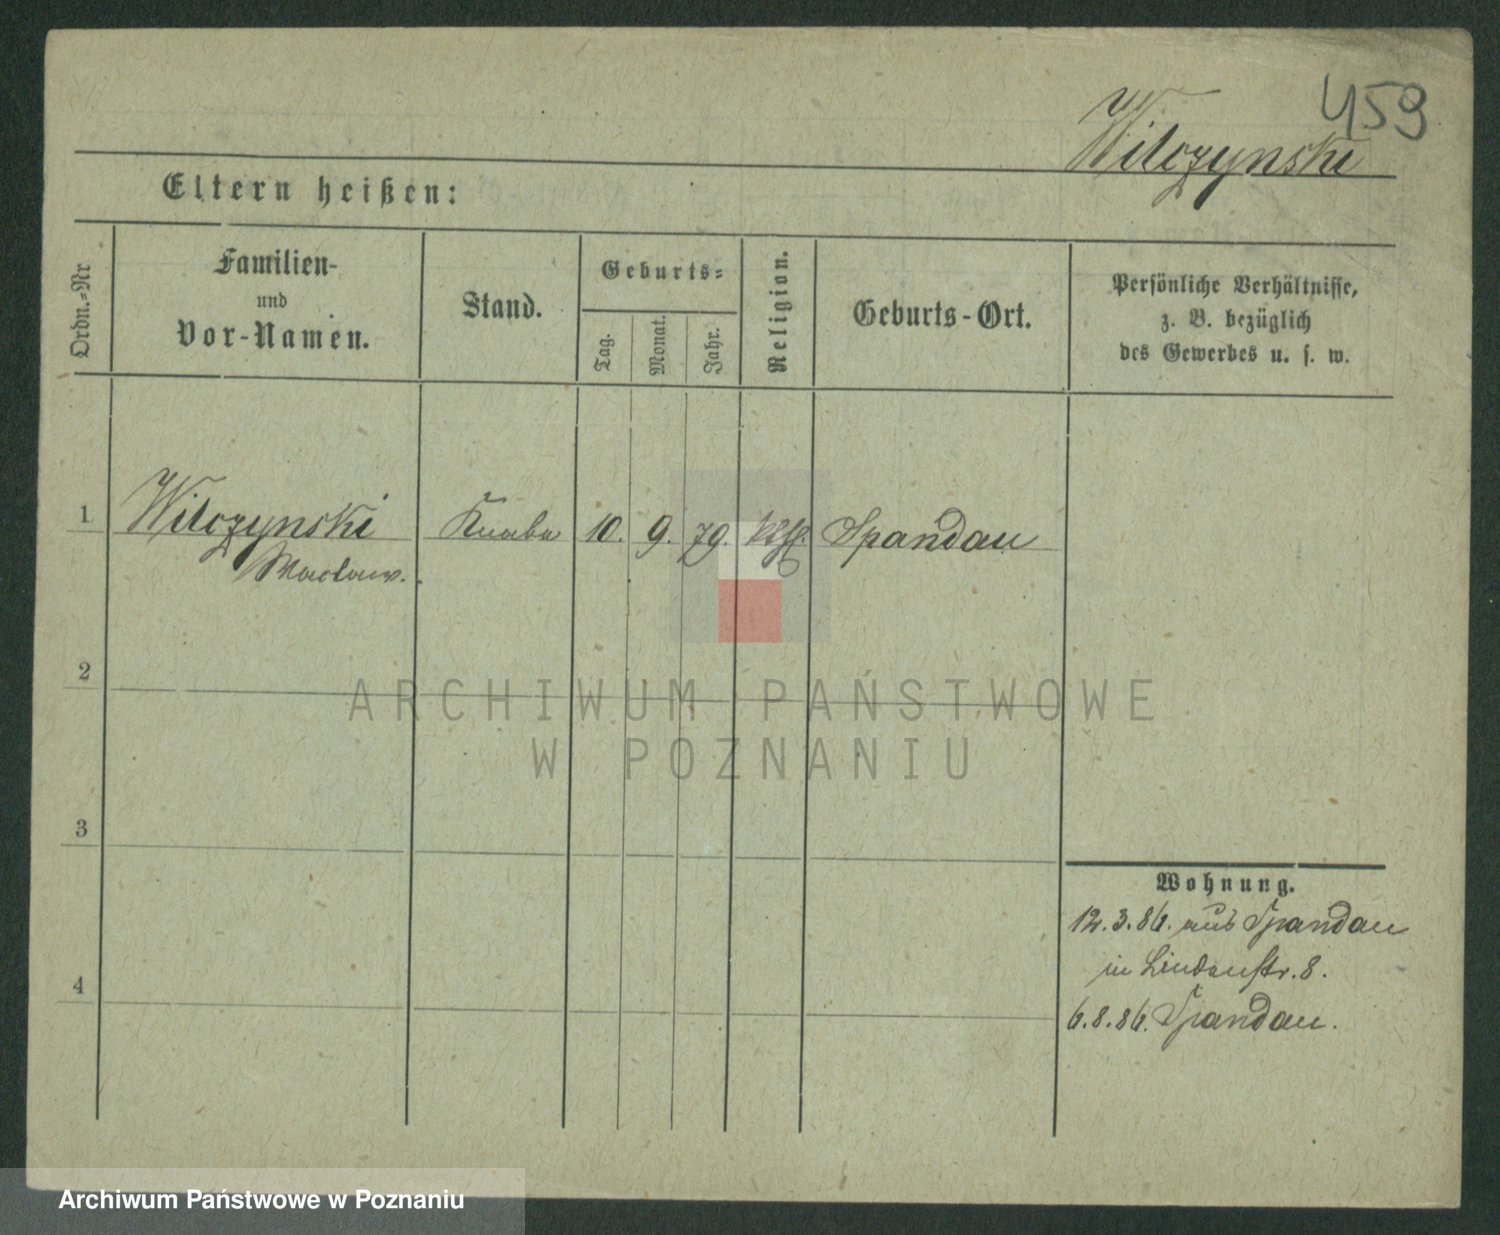 459
Wilczynski
Eltern heißen:
Ordn.=Nr
Familien-
und
Vor-Namen.
Stand.
Geburts=
Tag.
Monat.
Jahr.
Religion.
Geburts-Ort.
Persönliche Verhältnisse,
z. B. bezüglich
des Gewerbes u. s. w.
1 Wilczynski Knabe 10. 9. 79. kth. Spandau
Waclaw.
2
ARCHIWUM PAŃSTWOWE
W POZNANIU
3
Wohnung.
12.3.86. aus Spandau
in Lindenstr. 8.
4
6.8.86. Spandau.
Archiwum Państwowe w Poznaniu